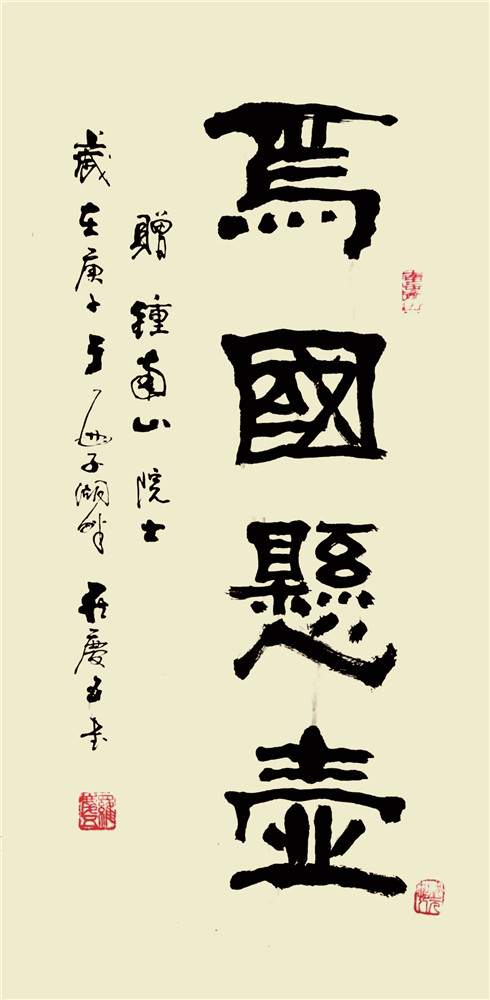 為國懸壺
贈 鍾南山 院士
歲在庚子于西子湖畔 慶書